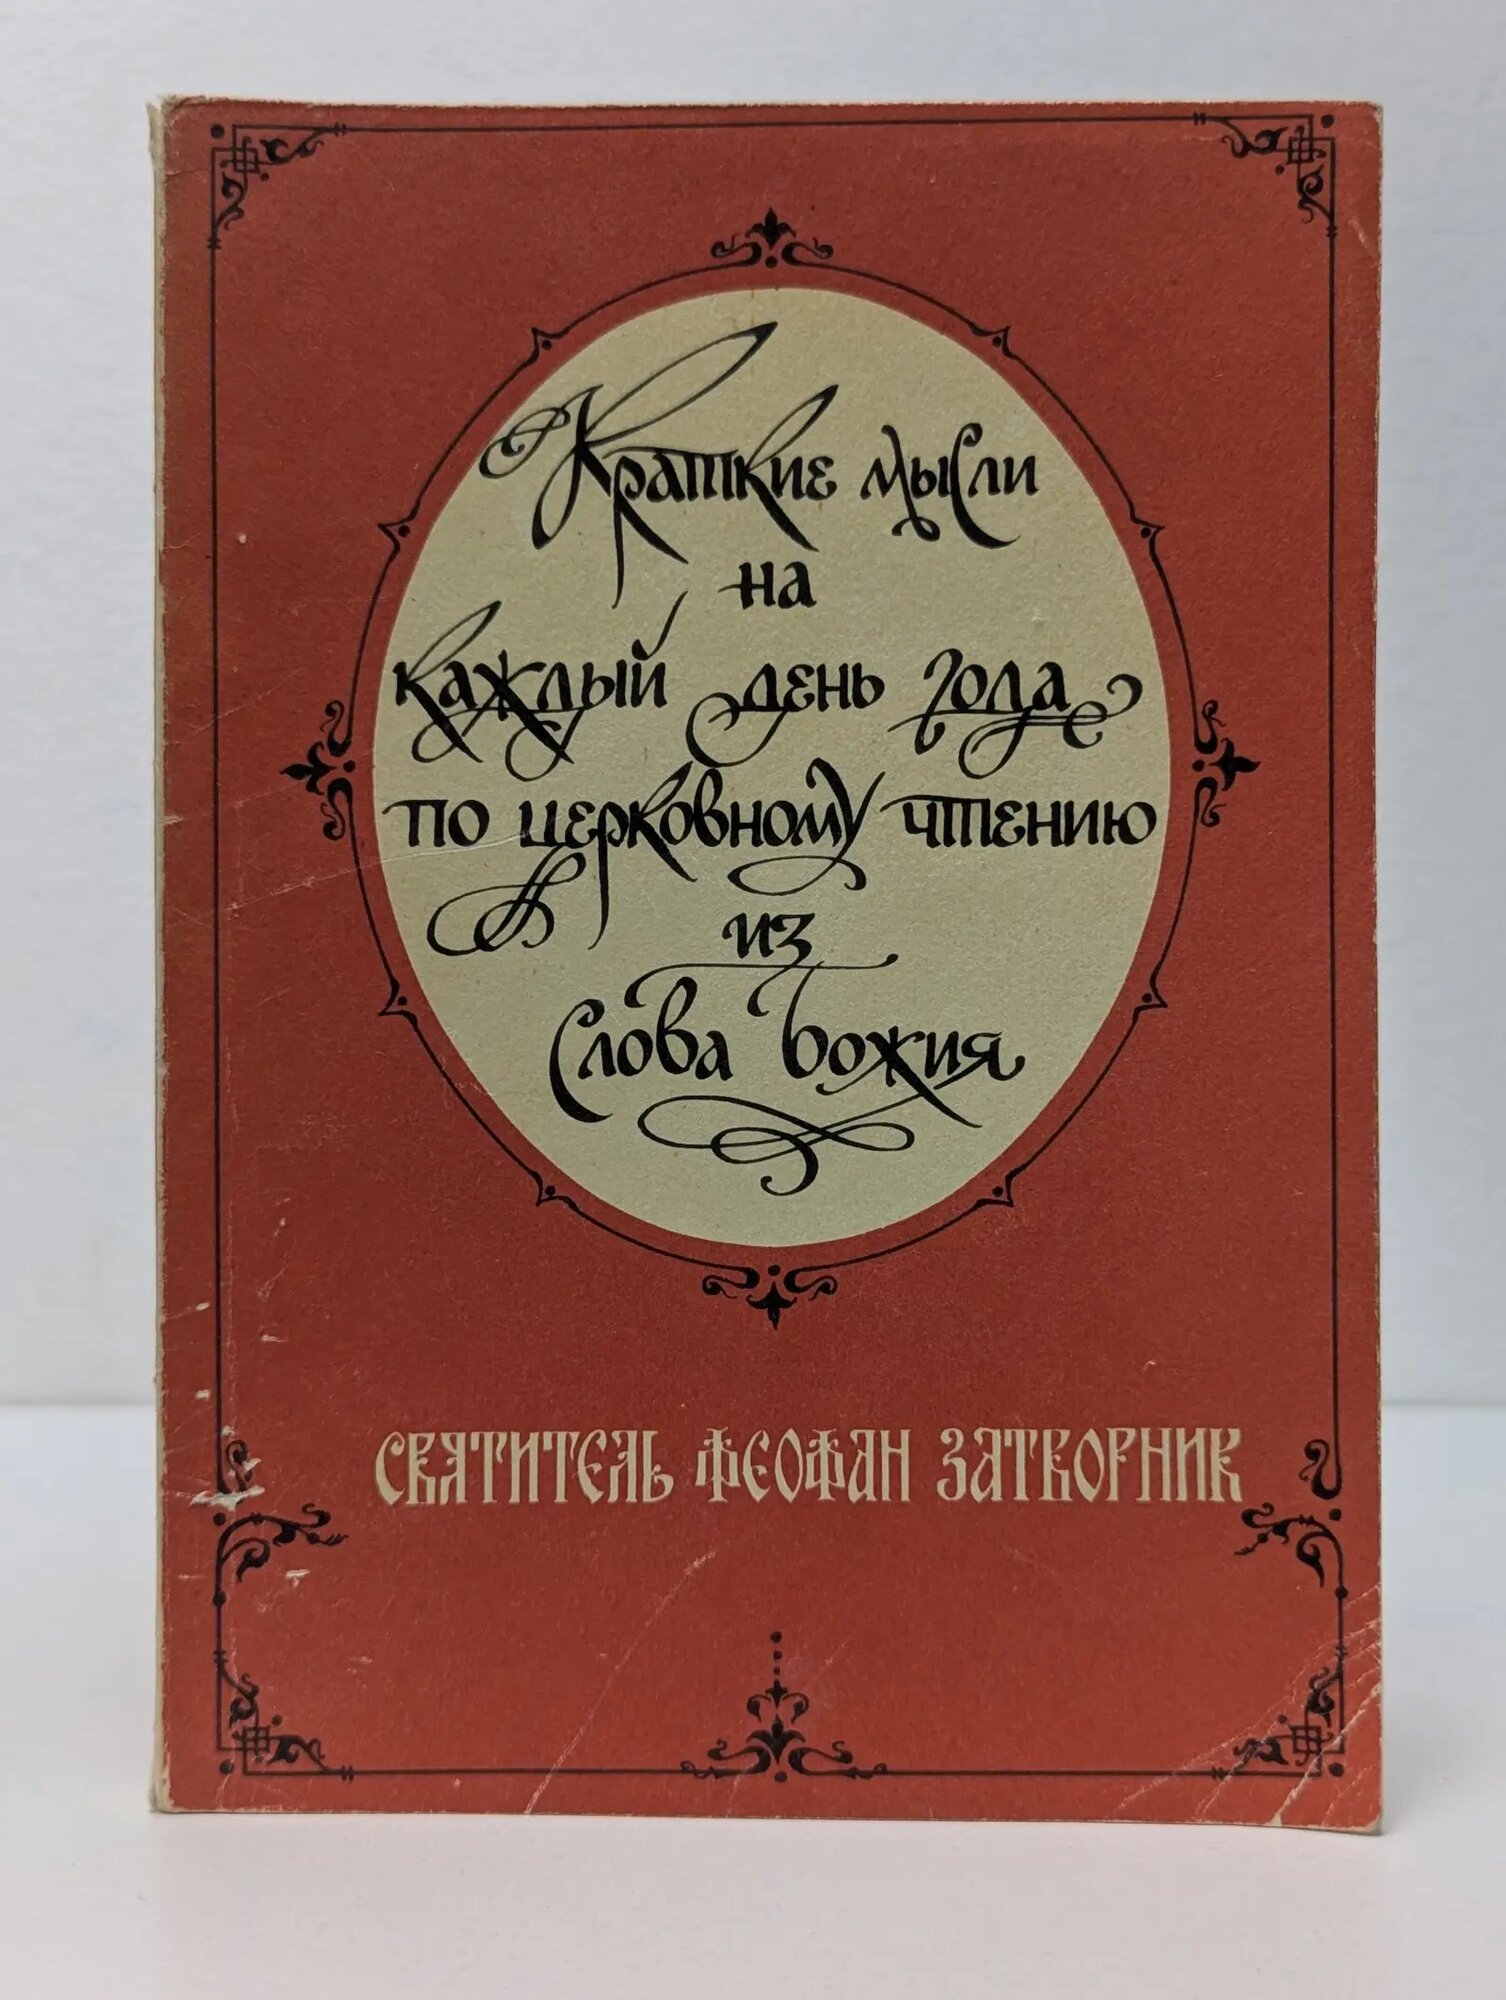 Краткие мысли
на
каждый день года
по церковному чтению
из
Слова Божия
СВЯТИТЕЛЬ ФЕОФАН ЗАТВОРНИК